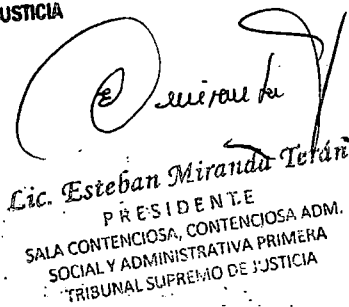 USTICIA
Lic. Esteban Miranda Terán
PRESIDENTE
SALA CONTENCIOSA, CONTENCIOSA ADM.
SOCIAL Y ADMINISTRATIVA PRIMERA
TRIBUNAL SUPREMO DE JUSTICIA